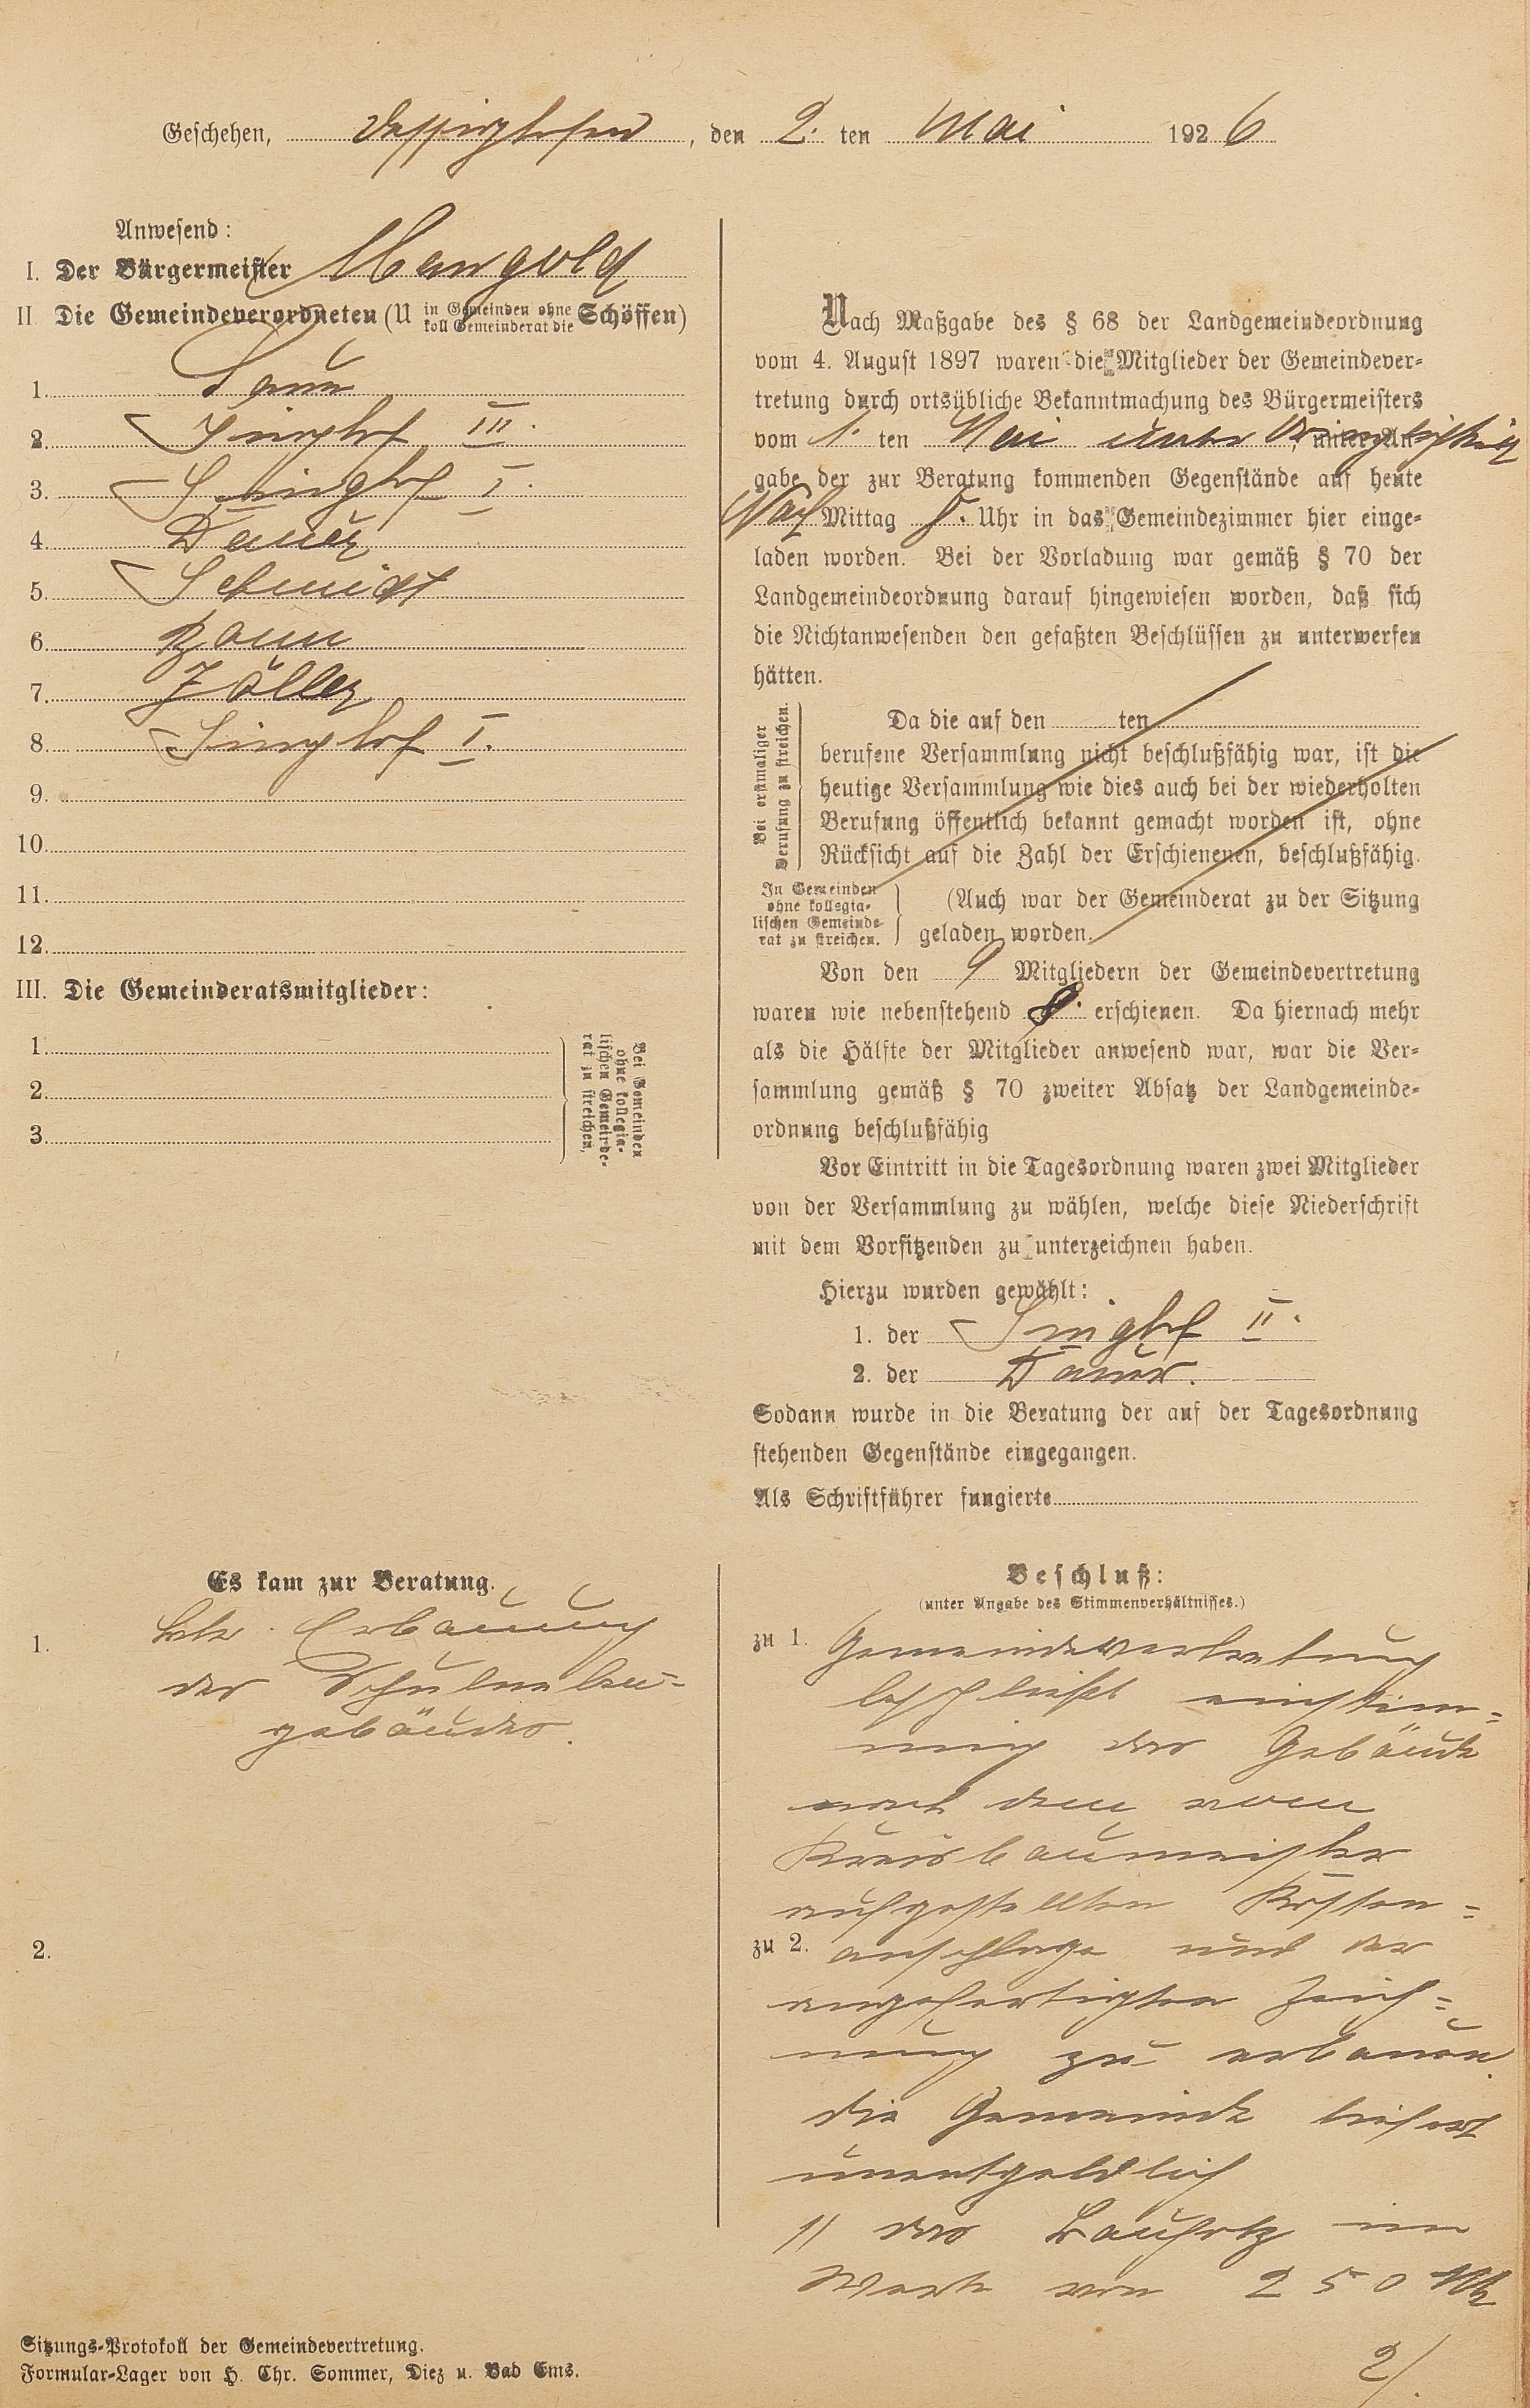 Geschehen, Dessighofen, den 2. ten Mai 1926
Anwesend:
I. Der Bürgermeister Mangold
II Die Gemeindeverordneten (U in Gemeinden ohne koll Gemeinderat die Schöffen)
1.
2. Singhof III.
3. Singhof I.
4. Dauer
5. Schmidt
6.
7. Zöller
8. Singhof I.
9.
10.
11.
12.
III. Die Gemeinderatsmitglieder:
1.
2.
3.
Bei Gemeinden
ohne kollegia-
lischen Gemeinde-
rat zu streichen.
Nach Maßgabe des § 68 der Landgemeindeordnung
vom 4. August 1897 waren die Mitglieder der Gemeindever-
tretung durch ortsübliche Bekanntmachung des Bürgermeisters
vom 1. ten Mai unter, unter An-
gabe der zur Beratung kommenden Gegenstände auf heute
Nach Mittag Uhr in das Gemeindezimmer hier einge-
laden worden. Bei der Vorladung war gemäß § 70 der
Landgemeindeordnung darauf hingewiesen worden, daß sich
die Nichtanwesenden den gefaßten Beschlüssen zu unterwerfen
hätten.
Bei erstmaliger
Berufung zu streichen.
Da die auf den ten
berufene Versammlung nicht beschlußfähig war, ist die
heutige Versammlung wie dies auch bei der wiederholten
Berufung öffentlich bekannt gemacht worden ist, ohne
Rücksicht auf die Zahl der Erschienenen, beschlußfähig.
In Gemeinden
ohne kollegia-
lischen Gemeinde-
rat zu streichen.
(Auch war der Gemeinderat zu der Sitzung
geladen worden.
Von den 9 Mitgliedern der Gemeindevertretung
waren wie nebenstehend 8. erschienen. Da hiernach mehr
als die Hälfte der Mitglieder anwesend war, war die Ver-
sammlung gemäß § 70 zweiter Absatz der Landgemeinde-
ordnung beschlußfähig
Vor Eintritt in die Tagesordnung waren zwei Mitglieder
von der Versammlung zu wählen, welche diese Niederschrift
mit dem Vorsitzenden zu unterzeichnen haben.
Hierzu wurden gewählt:
1. der Singhof II.
2. der Dauer.
Sodann wurde in die Beratung der auf der Tagesordnung
stehenden Gegenstände eingegangen.
Als Schriftführer fungierte
Es kam zur Beratung.
1. betr. Erbauung
des Schulneben-
gebäudes.
2.
Beschluß:
(unter Angabe des Stimmenverhältnisses.)
zu 1. Gemeindevertretung
beschließt einstim-
mig das Gebäude
nach dem vom
Kreisbaumeister
aufgestellten Kosten-
zu 2. anschlage und der
angefertigten Zeich-
nung zu erbauen.
die Gemeinde liefert
unentgeldlich
1/ das Bauholz im
Werte von 250 Mk
2/.
Sitzungs-Protokoll der Gemeindevertretung.
Formular-Lager von H. Chr. Sommer, Diez u. Bad Ems.